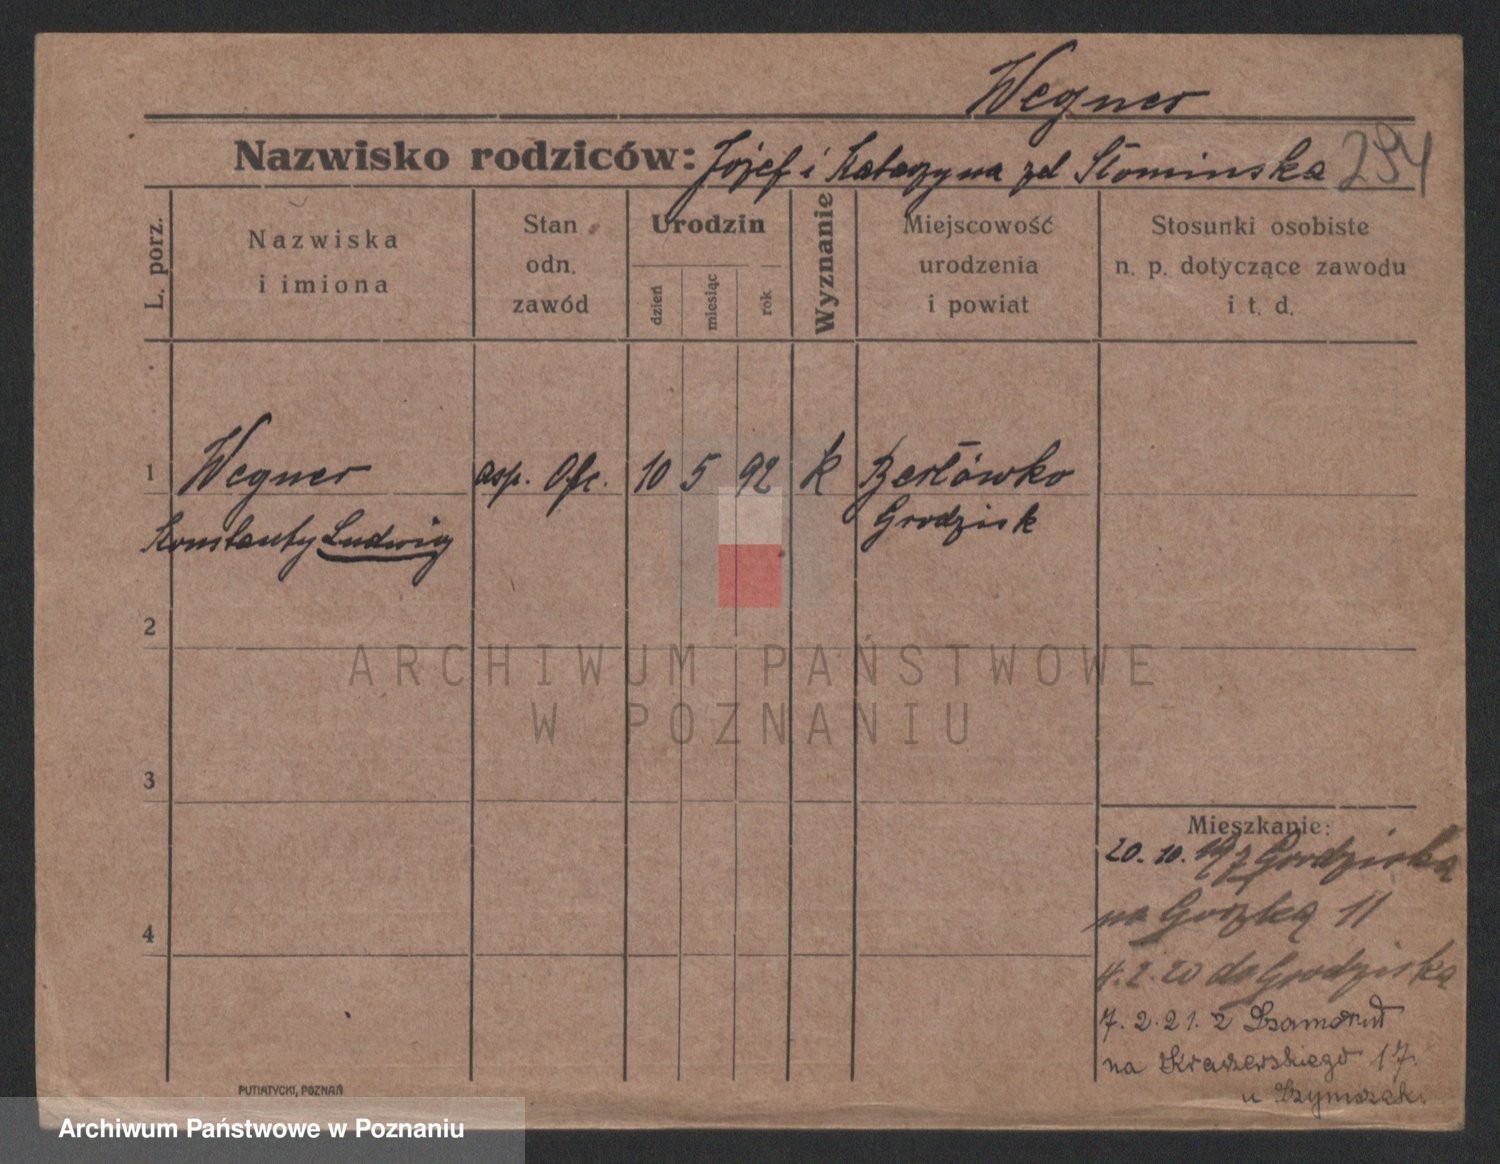 Wegner
Nazwisko rodziców: Józef i Katarzyna zd Słominska 294
L. porz.
Nazwiska
i imiona
Stan
odn.
zawód
Urodzin
dzień
miesiąc
rok
Wyznanie
Miejscowość
urodzenia
i powiat
Stosunki osobiste
n. p. dotyczące zawodu
i t. d.
1 Wegner asp. Ofc. 10 5 92 k
Grodzisk
Konstanty Ludwig
2
ARCHIWUM PAŃSTWOWE
W POZNANIU
3
Mieszkanie:
20. 10. 19 z Grodziska
na Gorzką 11
4. 2. 20 do Grodziska
7. 2. 21. z Szamotuł
na Kraszewskiego 17.
u Szymczak.
4
PUTIATYCKI, POZNAŃ
Archiwum Państwowe w Poznaniu